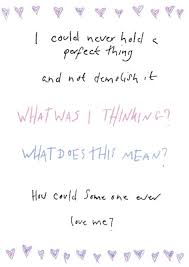 I could never hold a
perfect thing
and not demolish it
WHAT WAS I THINKING?
WHAT DOES THIS MEAN?
How could some one ever
love me?